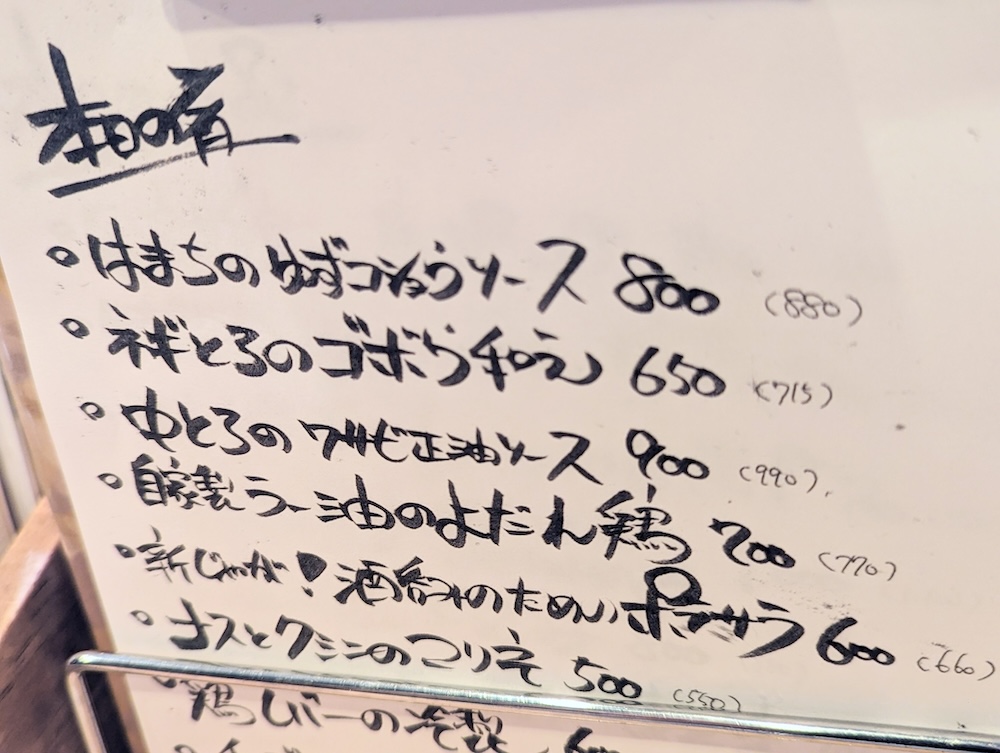 本日の肴
・はまちのゆずコショウソース 800 (880)
・ネギとろのゴボウ和え 650 (715)
・中とろのワサビ正油ソース 900 (990)
・自家製ラー油のよだれ鶏 700 (770)
・新じゃが!酒呑みのためのポテサラ 600 (660)
・ナスとクミンの 500 (550)
・鶏レバーの